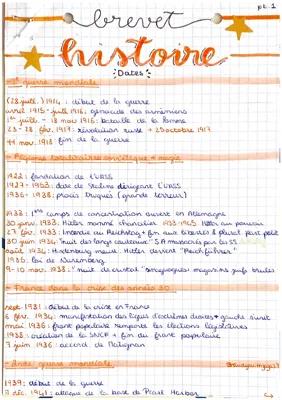 pt. 1
brevet
histoire
Dates
1ère guerre mondiale
(28 juill.) 1914 : début de la guerre
avril 1915 - juill 1916 : génocide des arméniens
1er juill. - 18 nov 1916 : bataille de la Somme
23 - 28 fév. 1917 : révolution russe + 25 octobre 1917
11 nov. 1918 fin de la guerre
Régimes totalitaires soviétique + nazie
1922 : fondation de l'URSS
1927 - 1953 : date de Staline dirigeant l'URSS
1936 - 1938 : procès truqués (grande terreur)
1933 : 1ers camps de concentration ouvert en Allemagne
30 janv. 1933 : Hitler nommé chancelier 1933-1945 Hitler au pouvoir
27 fév. 1933 : Incendie du Reichstag + fin aux libertés &
30 juin 1934 : "nuit des longs couteaux" S.A massacrés par les SS
août 1934 : Hindenburg meurt. Hitler devient "Reichführer"
1935 : loi de Nuremberg
9 - 10 nov. 1938 : "nuit de cristal" synagogues magasins juifs brulés
France dans la crise des années 30
sept. 1931 : début de la crise en France
6 fév. 1934 : manifestation des ligues d'extrêmes droites + gauche s'unit
mai 1936 : front populaire remporte les élections législatives
1938 : création de la SNCF + fin du front populaire
7 juin 1936 : accord de Matignon
2nde guerre mondiale
1939 : début de la guerre
7 déc. 1941 : attaque de la base de Pearl Harbor